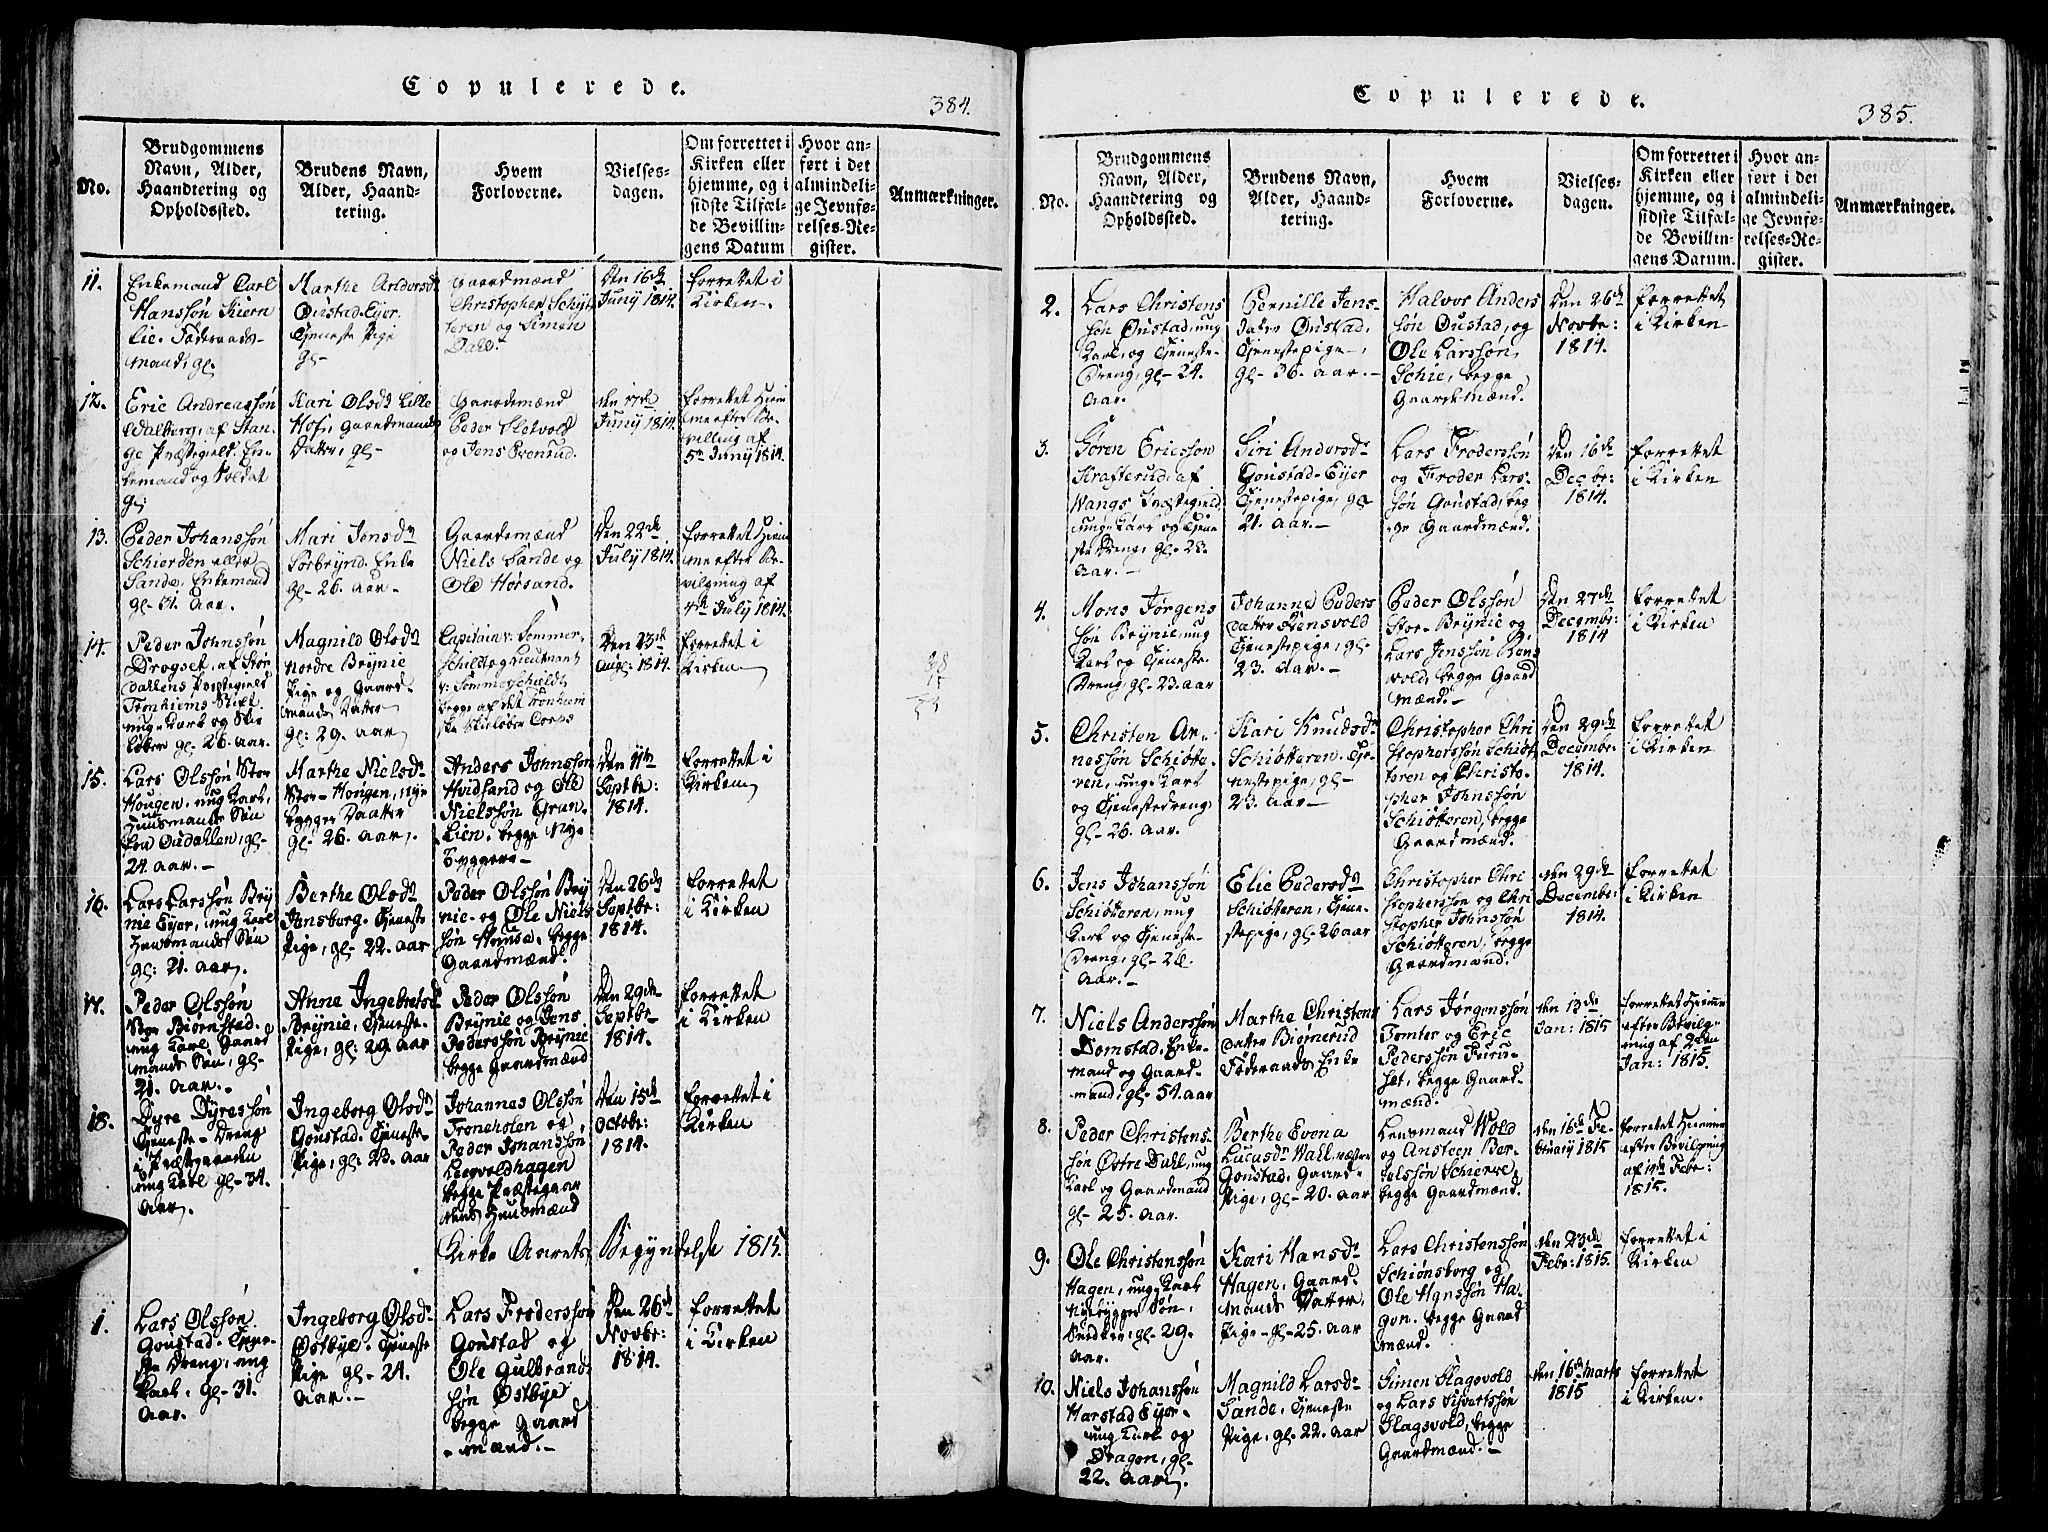 Copulerede.
384.
No.
Brudgommens
Navn, Alder,
Haandtering og
Opholdssted.
Brudens Navn,
Alder, Haand-
tering.
Hvem
Forloverne.
Vielses-
dagen.
Om forrettet i
Kirken eller
hjemme, og i
sidste Tilfæl-
de Bevillin-
gens Datum
Hvor an-
ført i det
almindeli-
ge Jevnfø-
relses-Re-
gister.
Anmærkninger.
11.
Enkemand Carl
Hanssøn Kiern
lie. Føderaads-
mand, gl.
Marthe Andersd
Oustad-Eyer
Tjeneste Pige
gl-
Gaardemænd
Christopher Schyt
teren og Simen
Dahl.
Den 16de
Juny 1814.
forrettet i
Kirken.
12.
Eric Andreassøn
Walberg, af Stan-
ge Præstegield. En-
kemand og Soldat
gl
Kari Olsdr Lille
Hof, Gaardmands
Datter, gl-
Gaardemænd
Peder Sletvold
og Jens Evenrud.
den 17de
Juny 1814.
forrettet Hiem
me efter Be-
villing af
5te Juny 1814.
13.
Peder Johanssøn
Schierden eller
Sande, Enkemand
gl- 31. Aar.
Mari Jensdr
Sorbrynd. Enke
gl- 26. Aar.
Gaardemænd
Niels Sande og
Ole Horsand.
Den 22de
July 1814.
forrettet Hiem
me efter Be-
vilgning af
4de July 1814.
14.
Peder Johnssøn
Drogset, af Stør
dallens Præstegield
Tronhiems Stift.
ung Karl og Skie
løber gl- 26. Aar.
Magnild Olsdr
nordre Brynie
Pige og Gaard-
mands Datter
gl: 29. Aar
Capitain v: Sommer-
schildt og Lieutnant
v: Sommerschildt,
begge af det Tronhiem
ske Skieløber Corps
Den 23de
Aug: 1814.
forrettet i
Kirken
15.
Lars Olssøn Stor
Hougen, ung Karl,
Huusmands Søn
fra Oudahlen, gl-
24. Aar.-
Marthe Nielsdr
Stor-Hougen, nye
bygger Daatter
gl- 26. Aar.
Anders Johnssøn
Hvidsand og Ole
Nielssøn Gran-
lien, begge Nye
Byggere-
Den 11te
Septbr:
1814.
forrettet i
Kirken
16.
Lars Larssøn Bry
nie Eyer, ung Karl
Huusmands Søn
gl: 21. Aar.
Berthe Olsdr
Jensborg-Tjeneste
Pige, gl- 22. Aar
Peder Olssøn Bry
nie- og Ole Niels
søn Homse, begge
Gaardmænd.
Den 26de
Septbr:
1814.
forrettet
i Kirken
17.
Peder Olssøn
Stor Biørnstad.
ung Karl Gaard
mands Søn, gl-
21. Aar.-
Anne Ingebretsd
Brynie, Tjeneste-
Pige, gl: 29. Aar
Peder Olssøn
Brynie og Jens
Pederssøn Brynie
begge Gaardmænd
Den 29de
Septbr
1814.
forrettet
i Kirken
18.
Dyre Dyressøn
Tjeneste-Dreng
i Præstegaarden
ung Karl gl- 34.
Aar.
Ingeborg Olsdr
Goustad. Tjeneste-
Pige, gl: 23. Aar
Johannes Olssøn
Froneholen og
Peder Johanssøn
Lægvoldhagen
begge Præstegaar
dens Huusmænd
Den 15de
Octobr:
1814.
forrettet i
Kirken
Kirke Aarets Begyndelse 1815.
1.
Lars Olssøn
Goustad. Tjene-
ste Dreng, ung
Karl, gl- 31.
Aar.
Ingeborg Olsdr
Ostbye. Tjeneste
Pige gl- 24.
Aar.-
Lars Froderssøn
Goustad og
Ole Gulbrand
søn Østbye
begge Gaard
mænd.-
Den 26de
Novbr:
1814.
forrettet
i Kirken
Copulerede.
385.
No.
Brudgommens
Navn, Alder,
Haandtering og
Opholdssted.
Brudens Navn,
Alder, Haand-
tering.
Hvem
Forloverne.
Vielses-
dagen.
Om forrettet i
Kirken eller
hjemme, og i
sidste Tilfæl-
de Bevillin-
gens Datum.
Hvor an-
ført i det
almindeli-
ge Jevnfø-
relses-Re-
gister.
Anmærkninger.
2.
Lars Christens
søn Oustad, ung
Karl, og Tjeneste-
Dreng, gl- 24.
Aar.
Pernille Jens-
dater Oustad,
Tjenestepige,
gl- 36. Aar.-
Halvor Anders
søn Oustad, og
Ole Larssøn,
Schie, begge
Gaardemænd.
Den 26de
Novbr:
1814.
forrettet
i Kirken
3.
Søren Ericssøn
Krafterud, af
Wangs Præstegield
ung Karl og Tjene
ste Dreng, gl- 23.
Aar.-
Siri Andersdr
Goustad-Eyer
Tjenestepige, gl
21. Aar.-
Lars Froderssøn
og Froder Lars-
søn Goustad, beg
ge Gaardmænd.
Den 16de
Decbr:
1814.
forrettet
i Kirken
4.
Mons Jørgens
søn Brynie, ung
Karl og Tjeneste-
Dreng, gl- 23. Aar
Johanne Peders
datter Stensvold
Tjenestepige, gl-
23. Aar.-
Peder Olssøn
Stor-Brynie og
Lars Jenssøn Røns
vold, begge Gaard
mænd.-
Den 27de
Decembr:
1814
forrettet
i Kirken
5.
Christen Ar-
nessøn Schiøtte-
ren, ung Karl
og Tjenestedreng
gl- 26. Aar.
Kari Knudsdr
Schiøtteren. Tje-
nestepige, gl-
23. Aar-
Christopher Chri
stopherssøn Schiøt-
teren og Christo-
pher Johnssøn
Schiøtteren, begge
Gaardmænd.
Den 29de
Decembr:
1814.
forrettet
i Kirken
6.
Jens Johanssøn
Schiøtteren, ung
Karl og Tjeneste-
Dreng, gl- 28.
Aar.-
Elie Pedersdr
Schiøtteren, Tjene-
stepige, gl- 26 Aar
Christopher Chri
stopherssøn og Chri
stopher Johnssøn
Schiøtteren, begge
Gaardmænd.
den 29de
Decembr:
1814.
forrettet
i Kirken
7.
Niels Anderssøn
Domstad, Enke-
mand og Gaard-
mand, gl- 54. Aar
Marthe Christens
datter Biørnerud
Føderaads Enke
Lars Jørgenssøn
Tomter og Eric
Pederssøn Furu-
set, begge Gaard-
mænd.
den 13de
Jan: 1815
forrettet Hiemme
efter Bevilg-
ning af 2den
Jan: 1815.
8.
Peder Christens-
søn Østre Dahl, ung
Karl og Gaardmand
gl- 25. Aar.
Berthe Evena
Lucasdr Wahl, østre
Goustad, Gaard-
Pige, gl- 20. Aar
Lensmand Wold
og Ansteen Ber-
telssøn Schierve,
begge Gaardmænd.
den 16de Fe-
bruary 1815
forrettet Hiemme
efter Bevilgning
af 14de Febr:
1815.
9.
Ole Christenssøn
Hagen, ung Karl
Nyebygger Søn,
Snidker, gl- 29.
Aar.
Kari Hansdr
Hagen, Gaard-
mands Datter,
Pige- gl- 25. Aar
Lars Christenssøn
Schiønsborg og
Ole Hanssøn Ha-
gen. begge Gaard
mænd.
den 23de
Febr: 1815.
forrettet i
Kirken
10.
Niels Johanssøn
Harstad Eyer-
ung Karl og
Dragon, gl-
22. Aar.
Magnild Larsdr
Sande, Tjeneste
Pige, gl- 22. Aar
Simen Slagsvold
og Lars Sivertssøn
Slagsvold, begge
Gaardmænd.-
den 16de Marts
1815
forrettet
i Kirken.